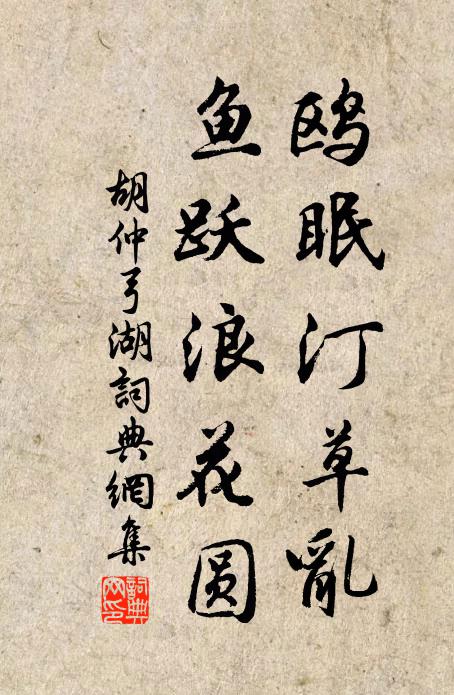 鸥眠汀草亂
鱼跃浪花圆
胡仲弓湖詞典網集
詞典網印